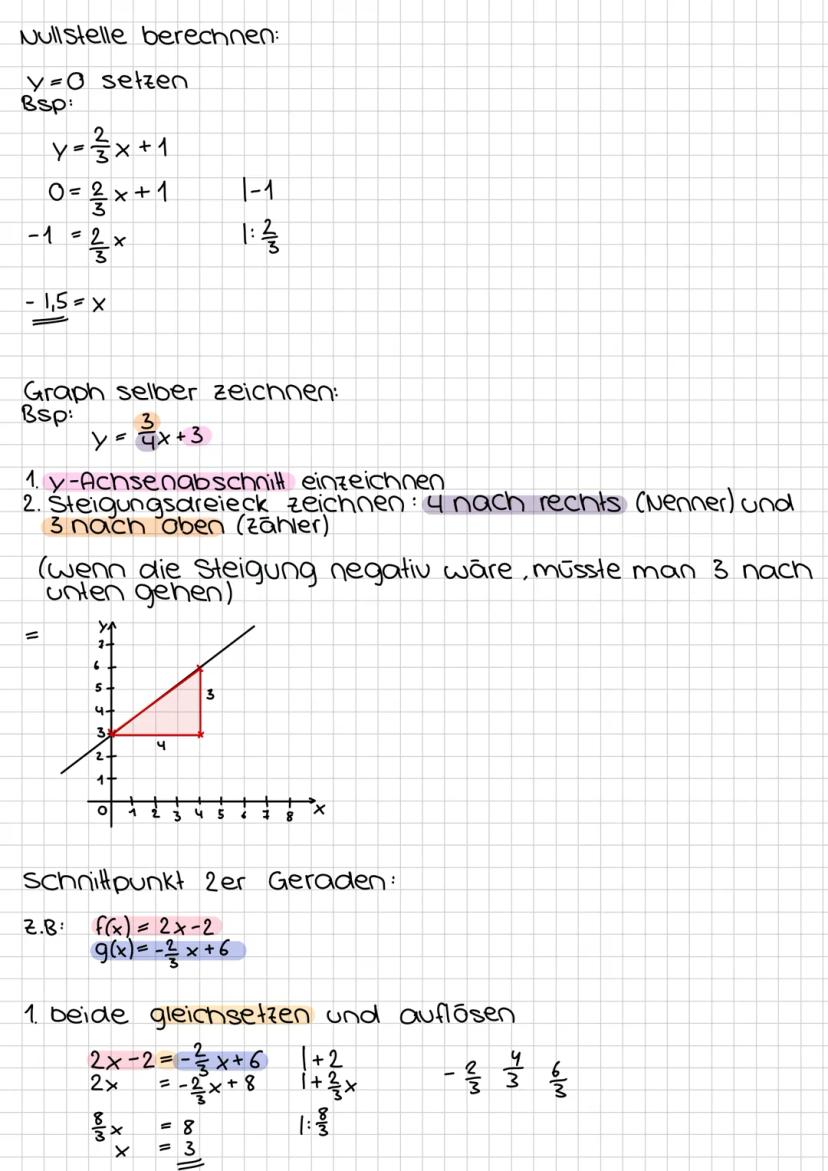 Nullstelle berechnen:
y=0 setzen
Bsp:
y = 2/3 x + 1
0 = 2/3 x + 1 |-1
-1 = 2/3 x |: 2/3
-1,5 = x
Graph selber zeichnen:
Bsp:
y = 3/4 x + 3
1. y-Achsenabschnitt einzeichnen
2. Steigungsdreieck zeichnen: 4 nach rechts (Nenner) und
3 nach oben (Zähler)
(wenn die Steigung negativ wäre, müsste man 3 nach
unten gehen)
=
y
7
6
5
3
4
3
4
2
1
0 1 2 3 4 5 6 7 8 x
Schnittpunkt 2er Geraden:
z.B: f(x) = 2x-2
g(x) = -2/3 x + 6
1. beide gleichsetzen und auflösen
2x-2 = -2/3 x + 6 |+2 - 2/3 4/3 6/3
2x = -2/3 x + 8 |+ 2/3 x
8/3 x = 8 |: 8/3
x = 3